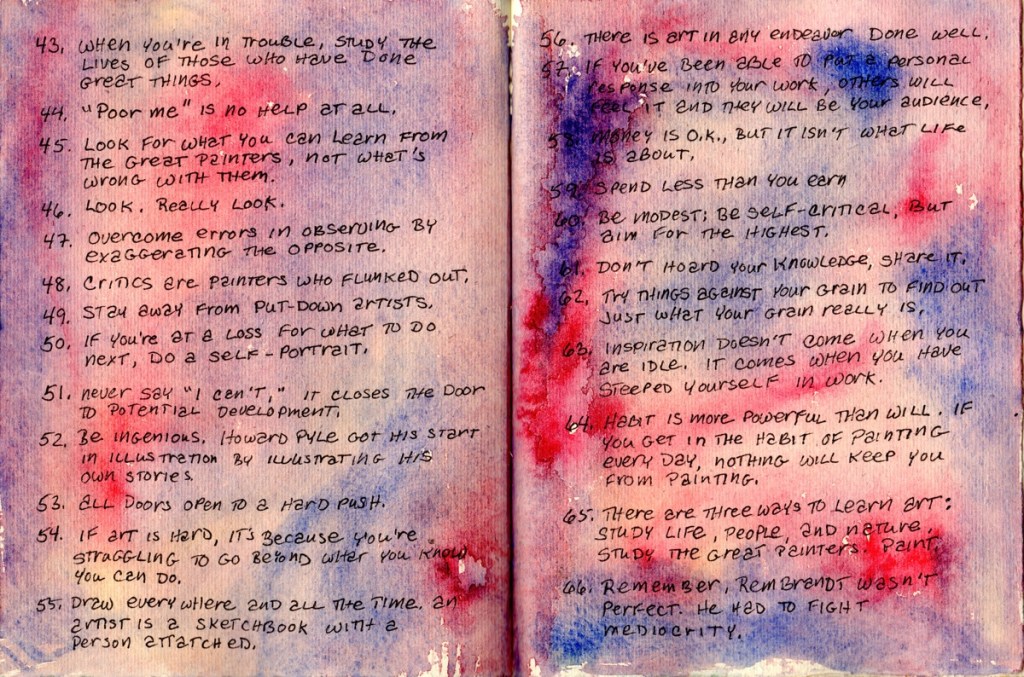 43. When you're in trouble, study the
lives of those who have done
great things.
44. "Poor me" is no help at all.
45. Look for what you can learn from
the great painters, not what's
wrong with them.
46. Look. Really look.
47. Overcome errors in observing by
exaggerating the opposite.
48. Critics are painters who flunked out.
49. Stay away from put-down artists.
50. If you're at a loss for what to do
next, do a self-portrait.
51. Never say "I can't," it closes the door
to potential development.
52. Be ingenious. Howard Pyle got his start
in illustration by illustrating his
own stories.
53. All doors open to a hard push.
54. If art is hard, it's because you're
struggling to go beyond what you know
you can do.
55. Draw everywhere and all the time. An
artist is a sketchbook with a
person attatched.
56. There is art in any endeavor done well.
57. If you've been able to put a personal
response into your work, others will
feel it and they will be your audience.
58. Money is O.K., but it isn't what life
is about.
59. Spend less than you earn
60. Be modest; be self-critical, but
aim for the highest.
61. Don't hoard your knowledge, share it.
62. Try things against your grain to find out
just what your grain really is.
63. Inspiration doesn't come when you
are idle. It comes when you have
steeped yourself in work.
64. Habit is more powerful than will. If
you get in the habit of painting
every day, nothing will keep you
from painting.
65. There are three ways to learn art:
Study life, people, and nature.
Study the great painters. Paint.
66. Remember, Rembrandt wasn't
perfect. He had to fight
mediocrity.